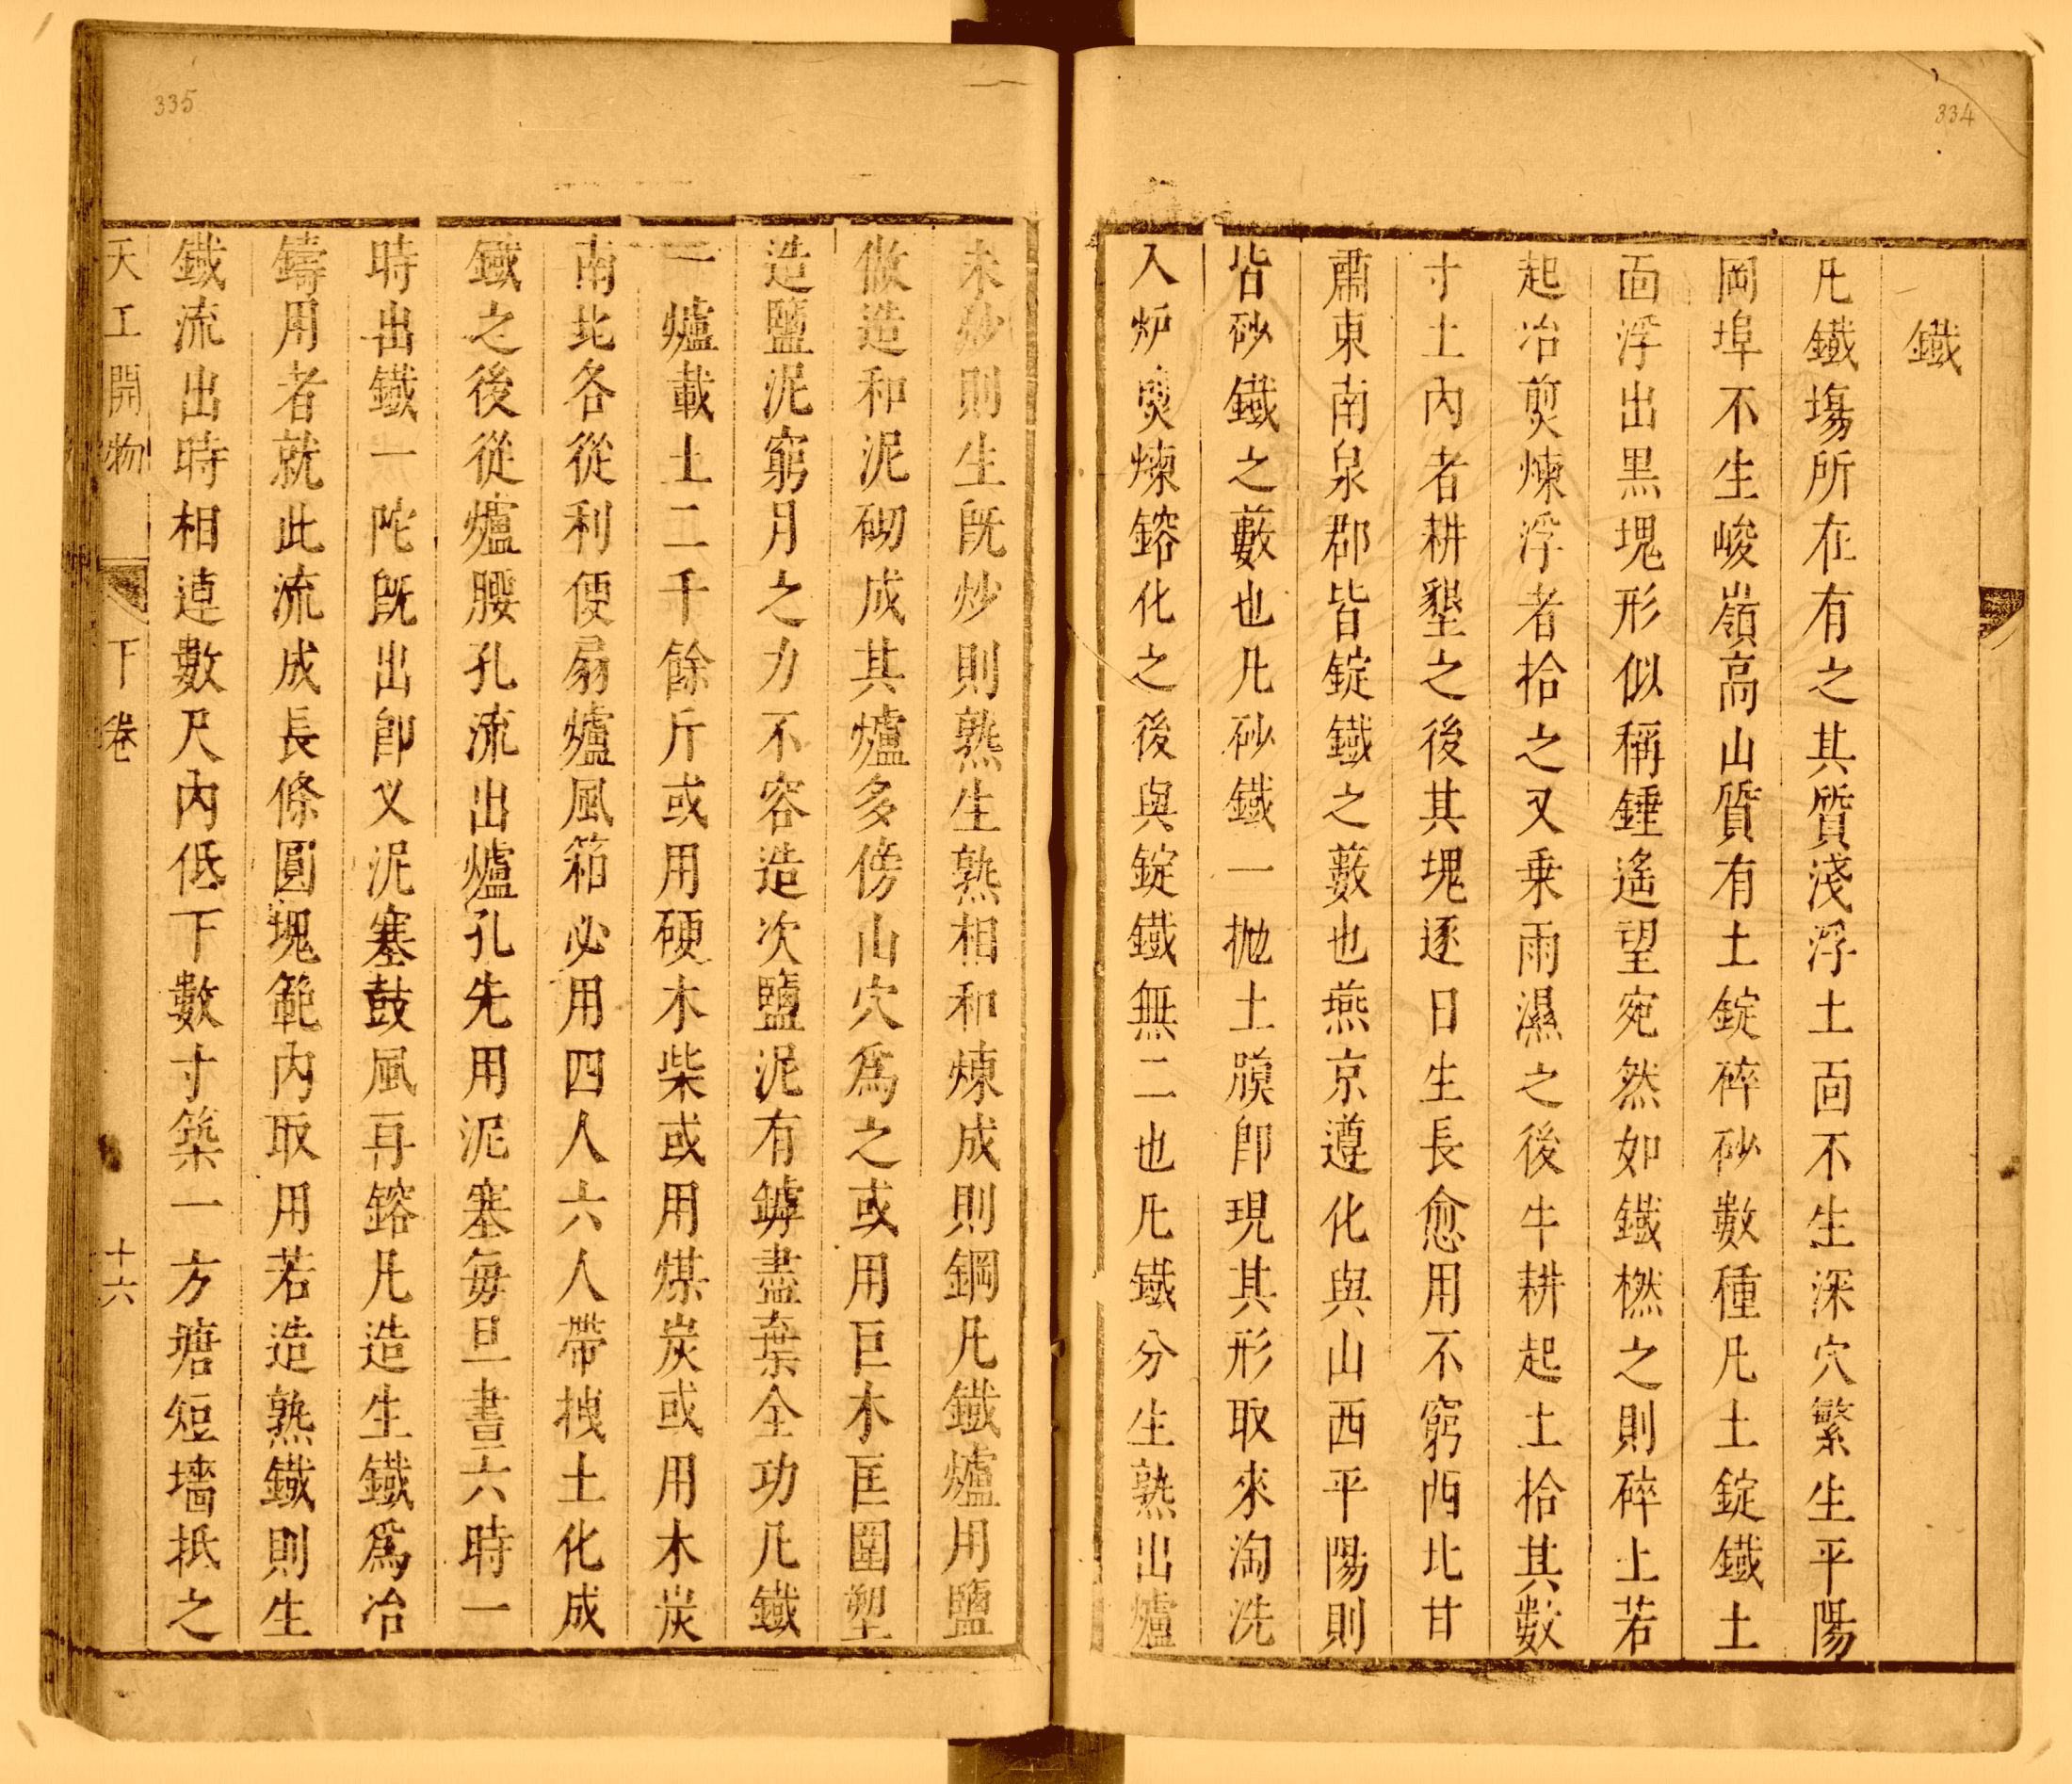 334
鐵
凡鐵塲所在有之其質淺浮土面不生深穴繁生平陽
岡埠不生峻嶺高山質有土錠碎砂數種凡土錠鐵土
面浮出黑塊形似稱錘遙望宛然如鐵撚之則碎土若
起冶煎煉浮者拾之又乗雨濕之後牛耕起土拾其數
寸土內者耕墾之後其塊逐日生長愈用不窮西北甘
肅東南泉郡皆錠鐵之藪也燕京遵化與山西平陽則
皆砂鐵之藪也凡砂鐵一抛土膜卽現其形取來淘洗
入炉煎煉鎔化之後與錠鐵無二也凡鐵分生熟出爐
335
未炒則生旣炒則熟生熟相和煉成則鋼凡鐵爐用鹽
做造和泥砌成其爐多傍山穴爲之或用巨木匡圍塑
造鹽泥窮月之力不容造次鹽泥有罅盡棄全功凡鐵
一爐載土二千餘斤或用硬木柴或用煤炭或用木炭
南北各從利便扇爐風箱必用四人六人帶拽土化成
鐵之後從爐腰孔流出爐孔先用泥塞每旦晝六時一
時出鐵一陀旣出卽叉泥塞鼓風再鎔凡造生鐵爲冶
鑄用者就此流成長條圓塊範內取用若造熟鐵則生
鐵流出時相連數尺內低下數寸築一方塘短墻抵之
天工開物 下卷 十六